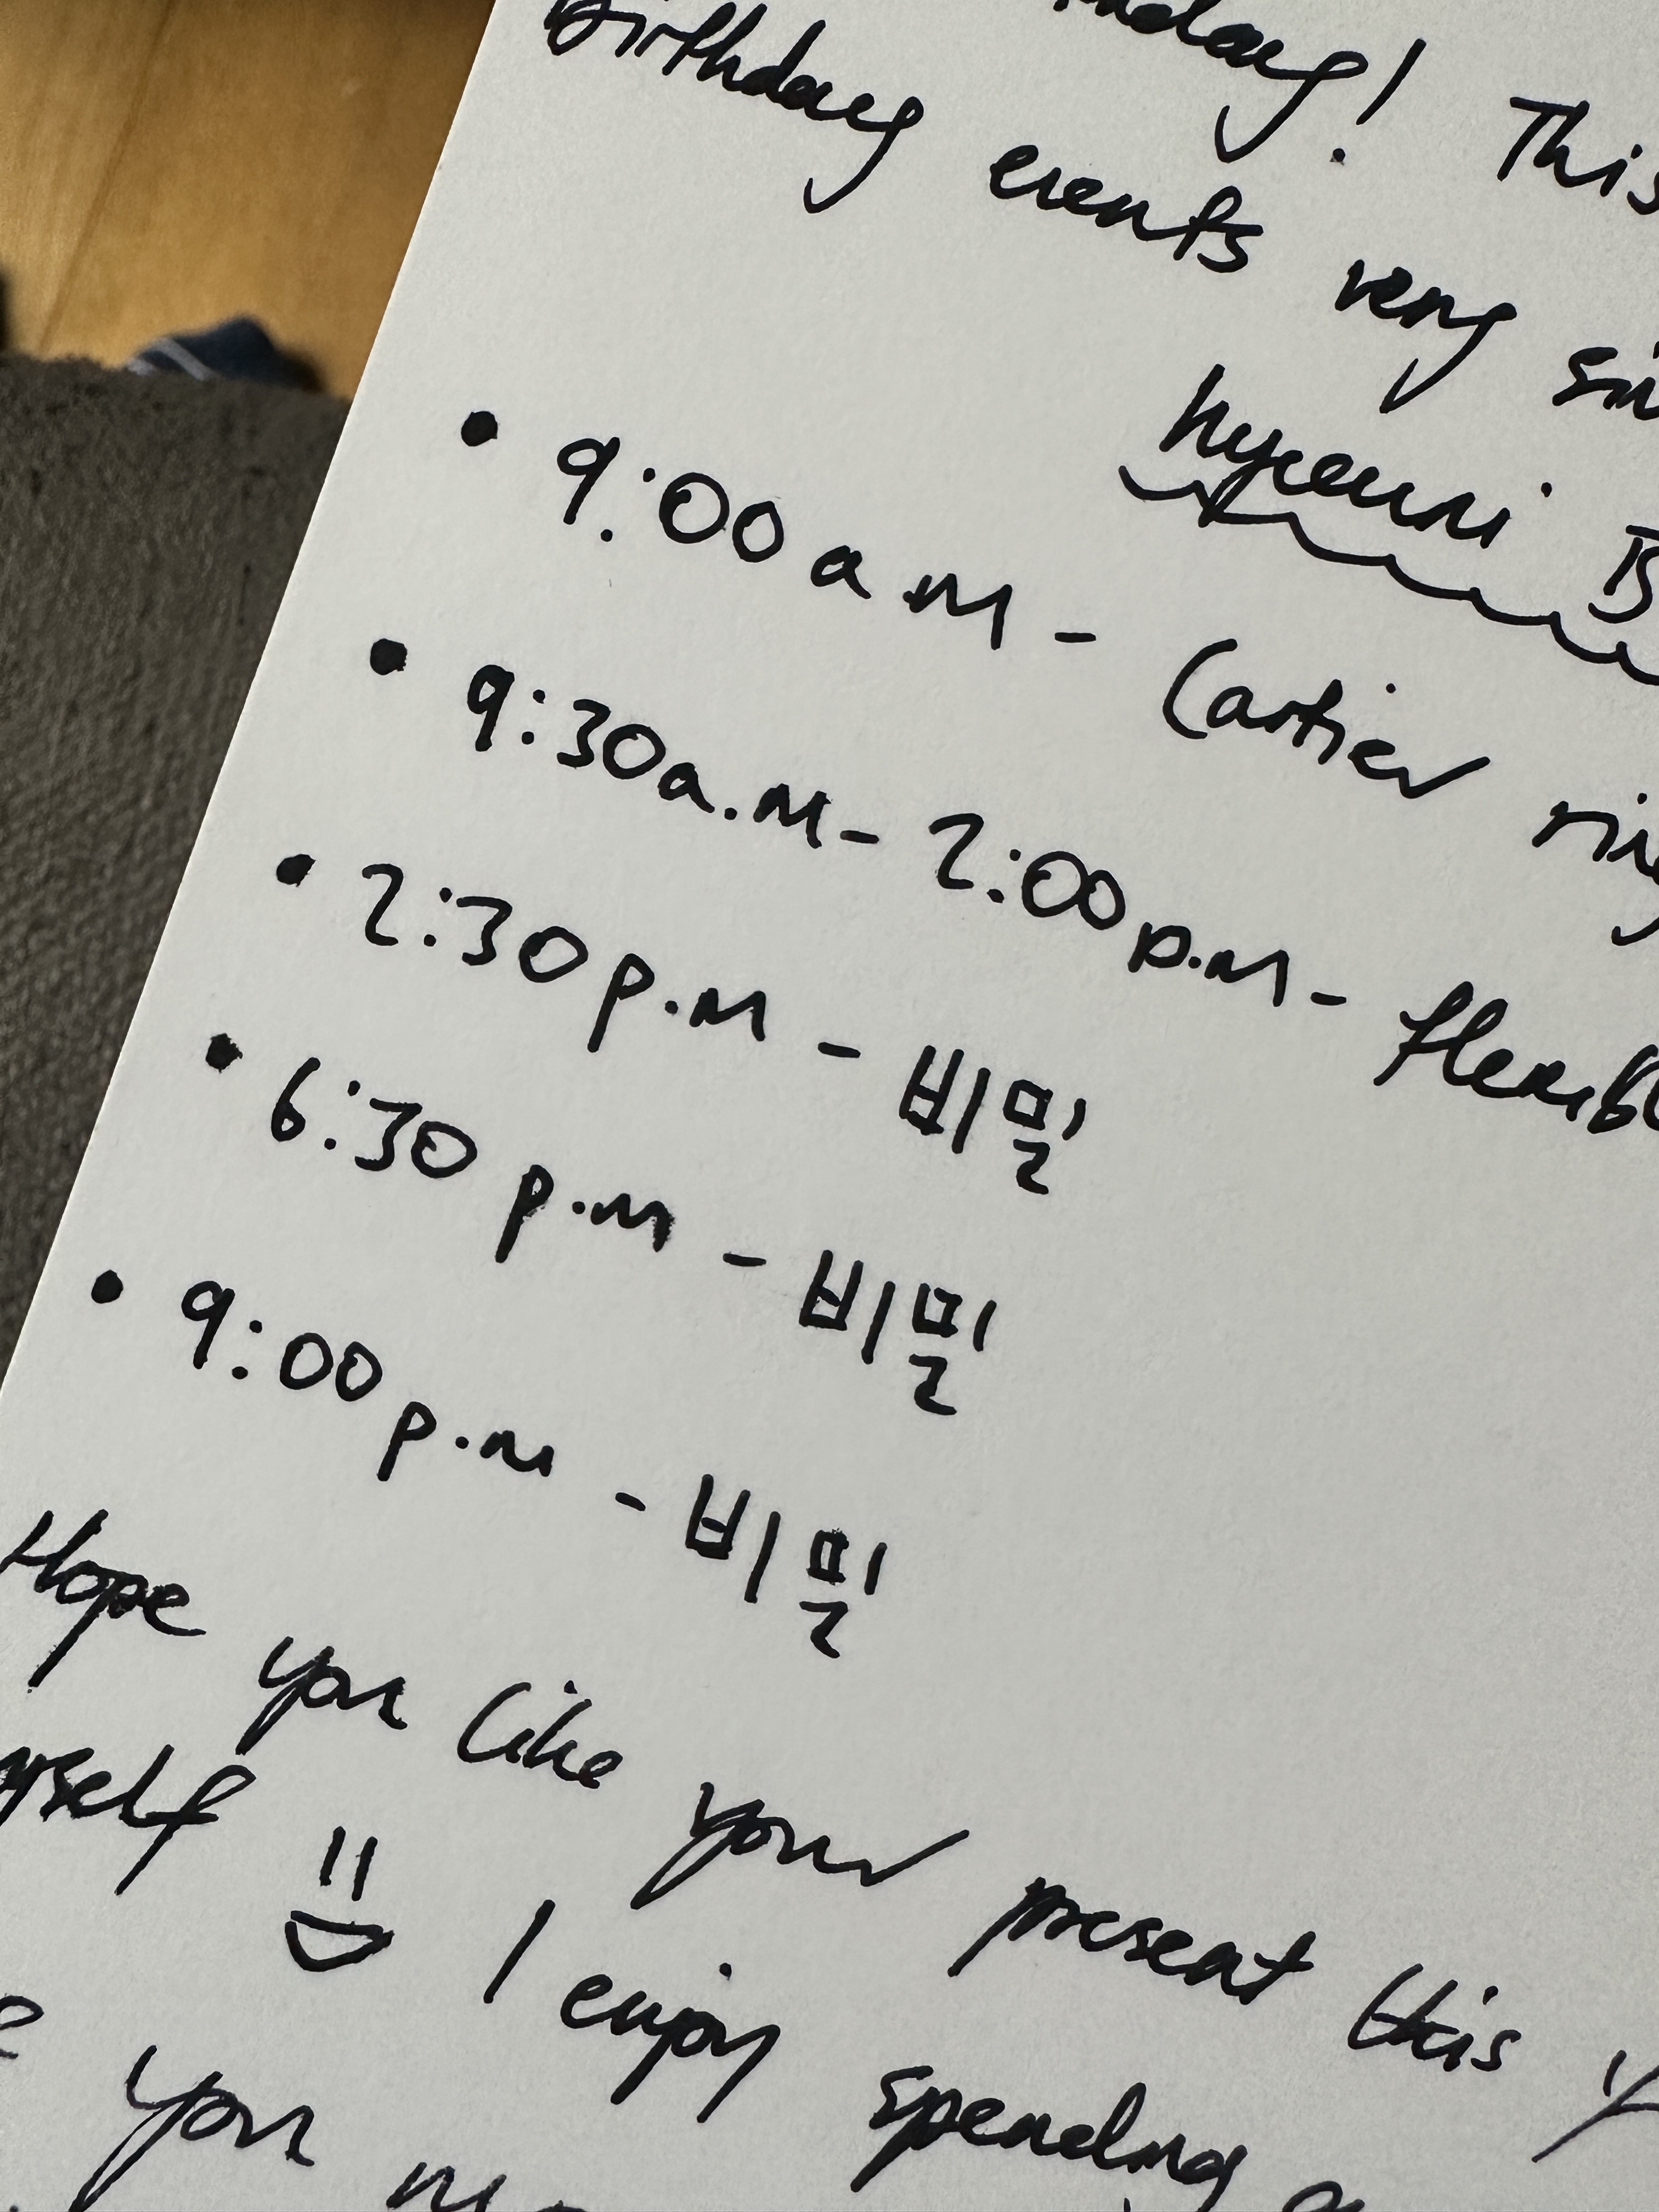 Birthday! This
Birthday events very
hyeuni
• 9:00 a.m - Cartier
• 9:30a.m - 2:00p.m - flexib
• 2:30 p.m - 비밀
• 6:30 p.m - 비밀
• 9:00 p.m - 비밀
Hope you like your present this y
I enjoy spending
you